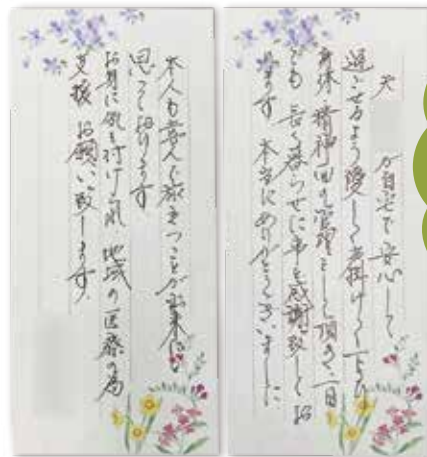 夫 が自宅で安心して
過ごせるよう優しく声掛けして下さり
身体、精神面の管理をして頂き、一日
でも長く暮らせた事を感謝致して居
ります 本当にありがとうございました
本人も喜んで旅立つことが出来たと
思って居ります
お身に気を付けられ 地域の医療の為
支援お願い致します。